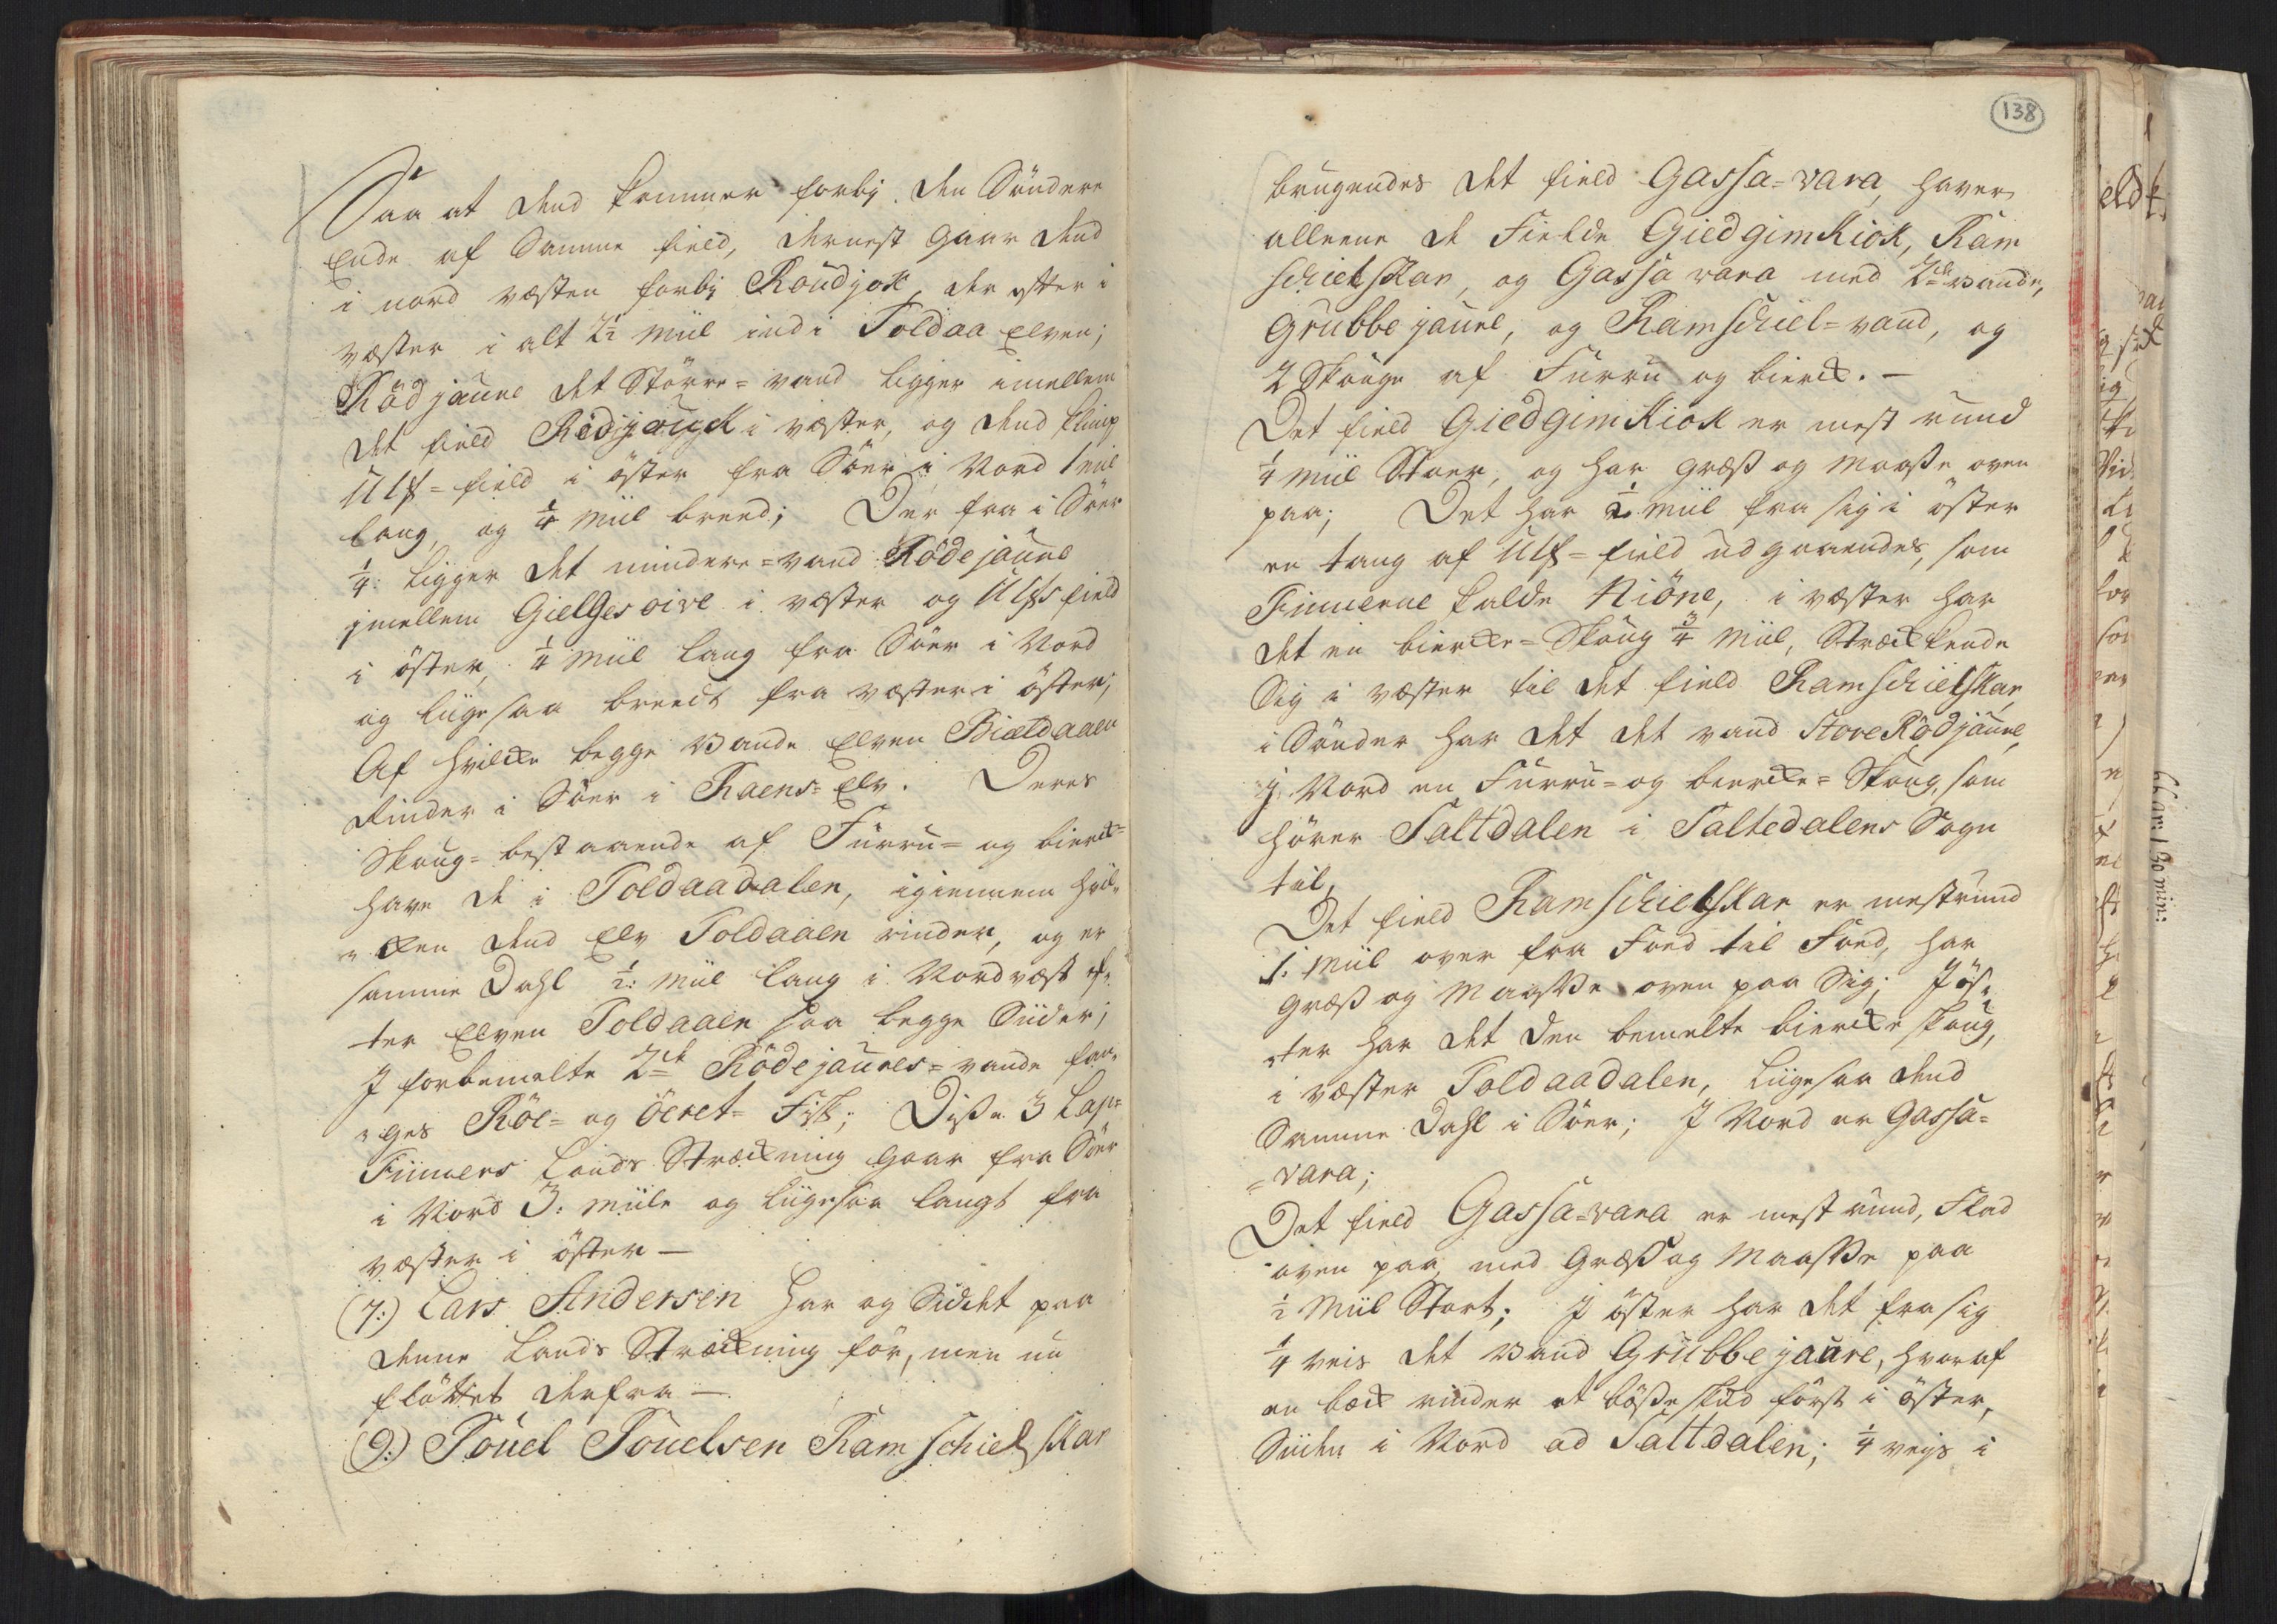 Saa at dend kommer forbj den Söndere
Ende af Samme field, dernest gaar dend
i nord vesten forbj Roudjok, der efter i
vester i alt 2½ Miil ind i Toldaa Elven;
Rödjaure det Större-vand ligger imellem
det field Rödjouck i vester, og dend
Ulfs-field i öster fra Söer i Nord 1 Miil
lang, og ¼ Miil breed; Der fra i Söer
¼: ligger det mindere-vand Rödejaure
jmellem Gielgesoive i vester og Ulfsfield
i öster, ¼ Miil lang fra Söer i Nord
og liigesaa breedt fra vester i öster;
Af hvilcke begge Vande Elven Bieldaaen
rinder i Söer i Raens-Elv. Deres
Skoug-bestaaende af Furru- og bierck-
have de i Toldaadalen, igiennem hvil-
-cken dend Elv Toldaaen rinder, og er
samme Dahl ½: Miil lang i Nordvest ef-
ter Elven Toldaaen paa begge Siider;
J forbemelte 2de Rödejaures-vande fan-
-ges Röe- og Öeret-Fisk; Disse 3 Lap-
Finners Lands Streckning gaar fra Söer
i Nord 3: Miile og liigesaa langt fra
vester i öster —
(7:) Lars Andersen har og Siddet paa
denne Lands Streckning för, men nu
flöttet derfra —
(9:) Pouel Pouelsen Ramschielskar
138
brugendes det field Gassa-vara, haver
alleene de Fielde GiedgimKiok, Ram
schielskar, og Gassa vara med 2de Vande,
Grubbejaure, og Ramschiel-vand, og
2 Skouge af Furru og bierck. —
Det field GiedgimKiok er mest rund
¼ Miil Stoer, og har græs og Maasse oven
paa; Det har ½ Miil fra sig i öster
en tang af Ulfs-field udgaaendes, som
Finnerne kalde Niöne, i vester har
det en biercke-Skoug ¾ Miil, Streckkende
Sig i vester til det field Ramschielskar,
i Sönder har det det vand Store Rödjaure,
j Nord en Furru- og biercke-Skoug, som
hörer Saltdalen i Saltedalens Sogn
til,
Det field Ramschielskar er mest rund
1: Miil over fra Foed til Foed, har
græs og Maasse oven paa Sig; J ös-
-ter har det den bemelte biercke skoug,
i vester Toldaadalen, liigesaa dend
Samme Dahl i Söer; J Nord er Gassa-
-vara;
Det field Gassa-vara er mest rund, Flad
oven paa, med Græs og Maasse paa
½ Miil Stort; J öster har det fra sig
¼ veis det Vand Grubbejaure, hvoraf
en beck rinder et bösseskud först i öster,
Siiden i Nord ad Saltdalen; ¼ vejs i